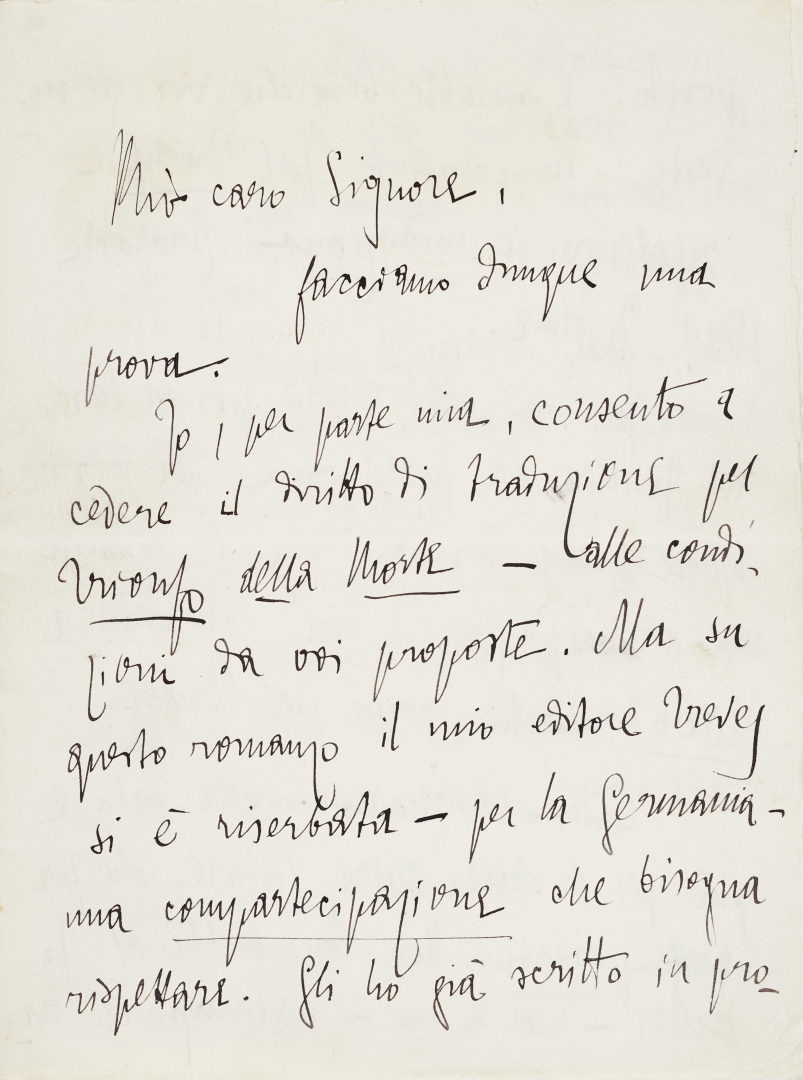 Mio caro Signore,
facciamo dunque una
prova.
Io, per parte mia, consento a
cedere il diritto di traduzione pel
Trionfo della Morte — alle condi-
zioni da voi proposte. Ma su
questo romanzo il mio editore Treves
si è riserbata — per la Germania -
una compartecipazione che bisogna
rispettare. Gli ho già scritto in pro-